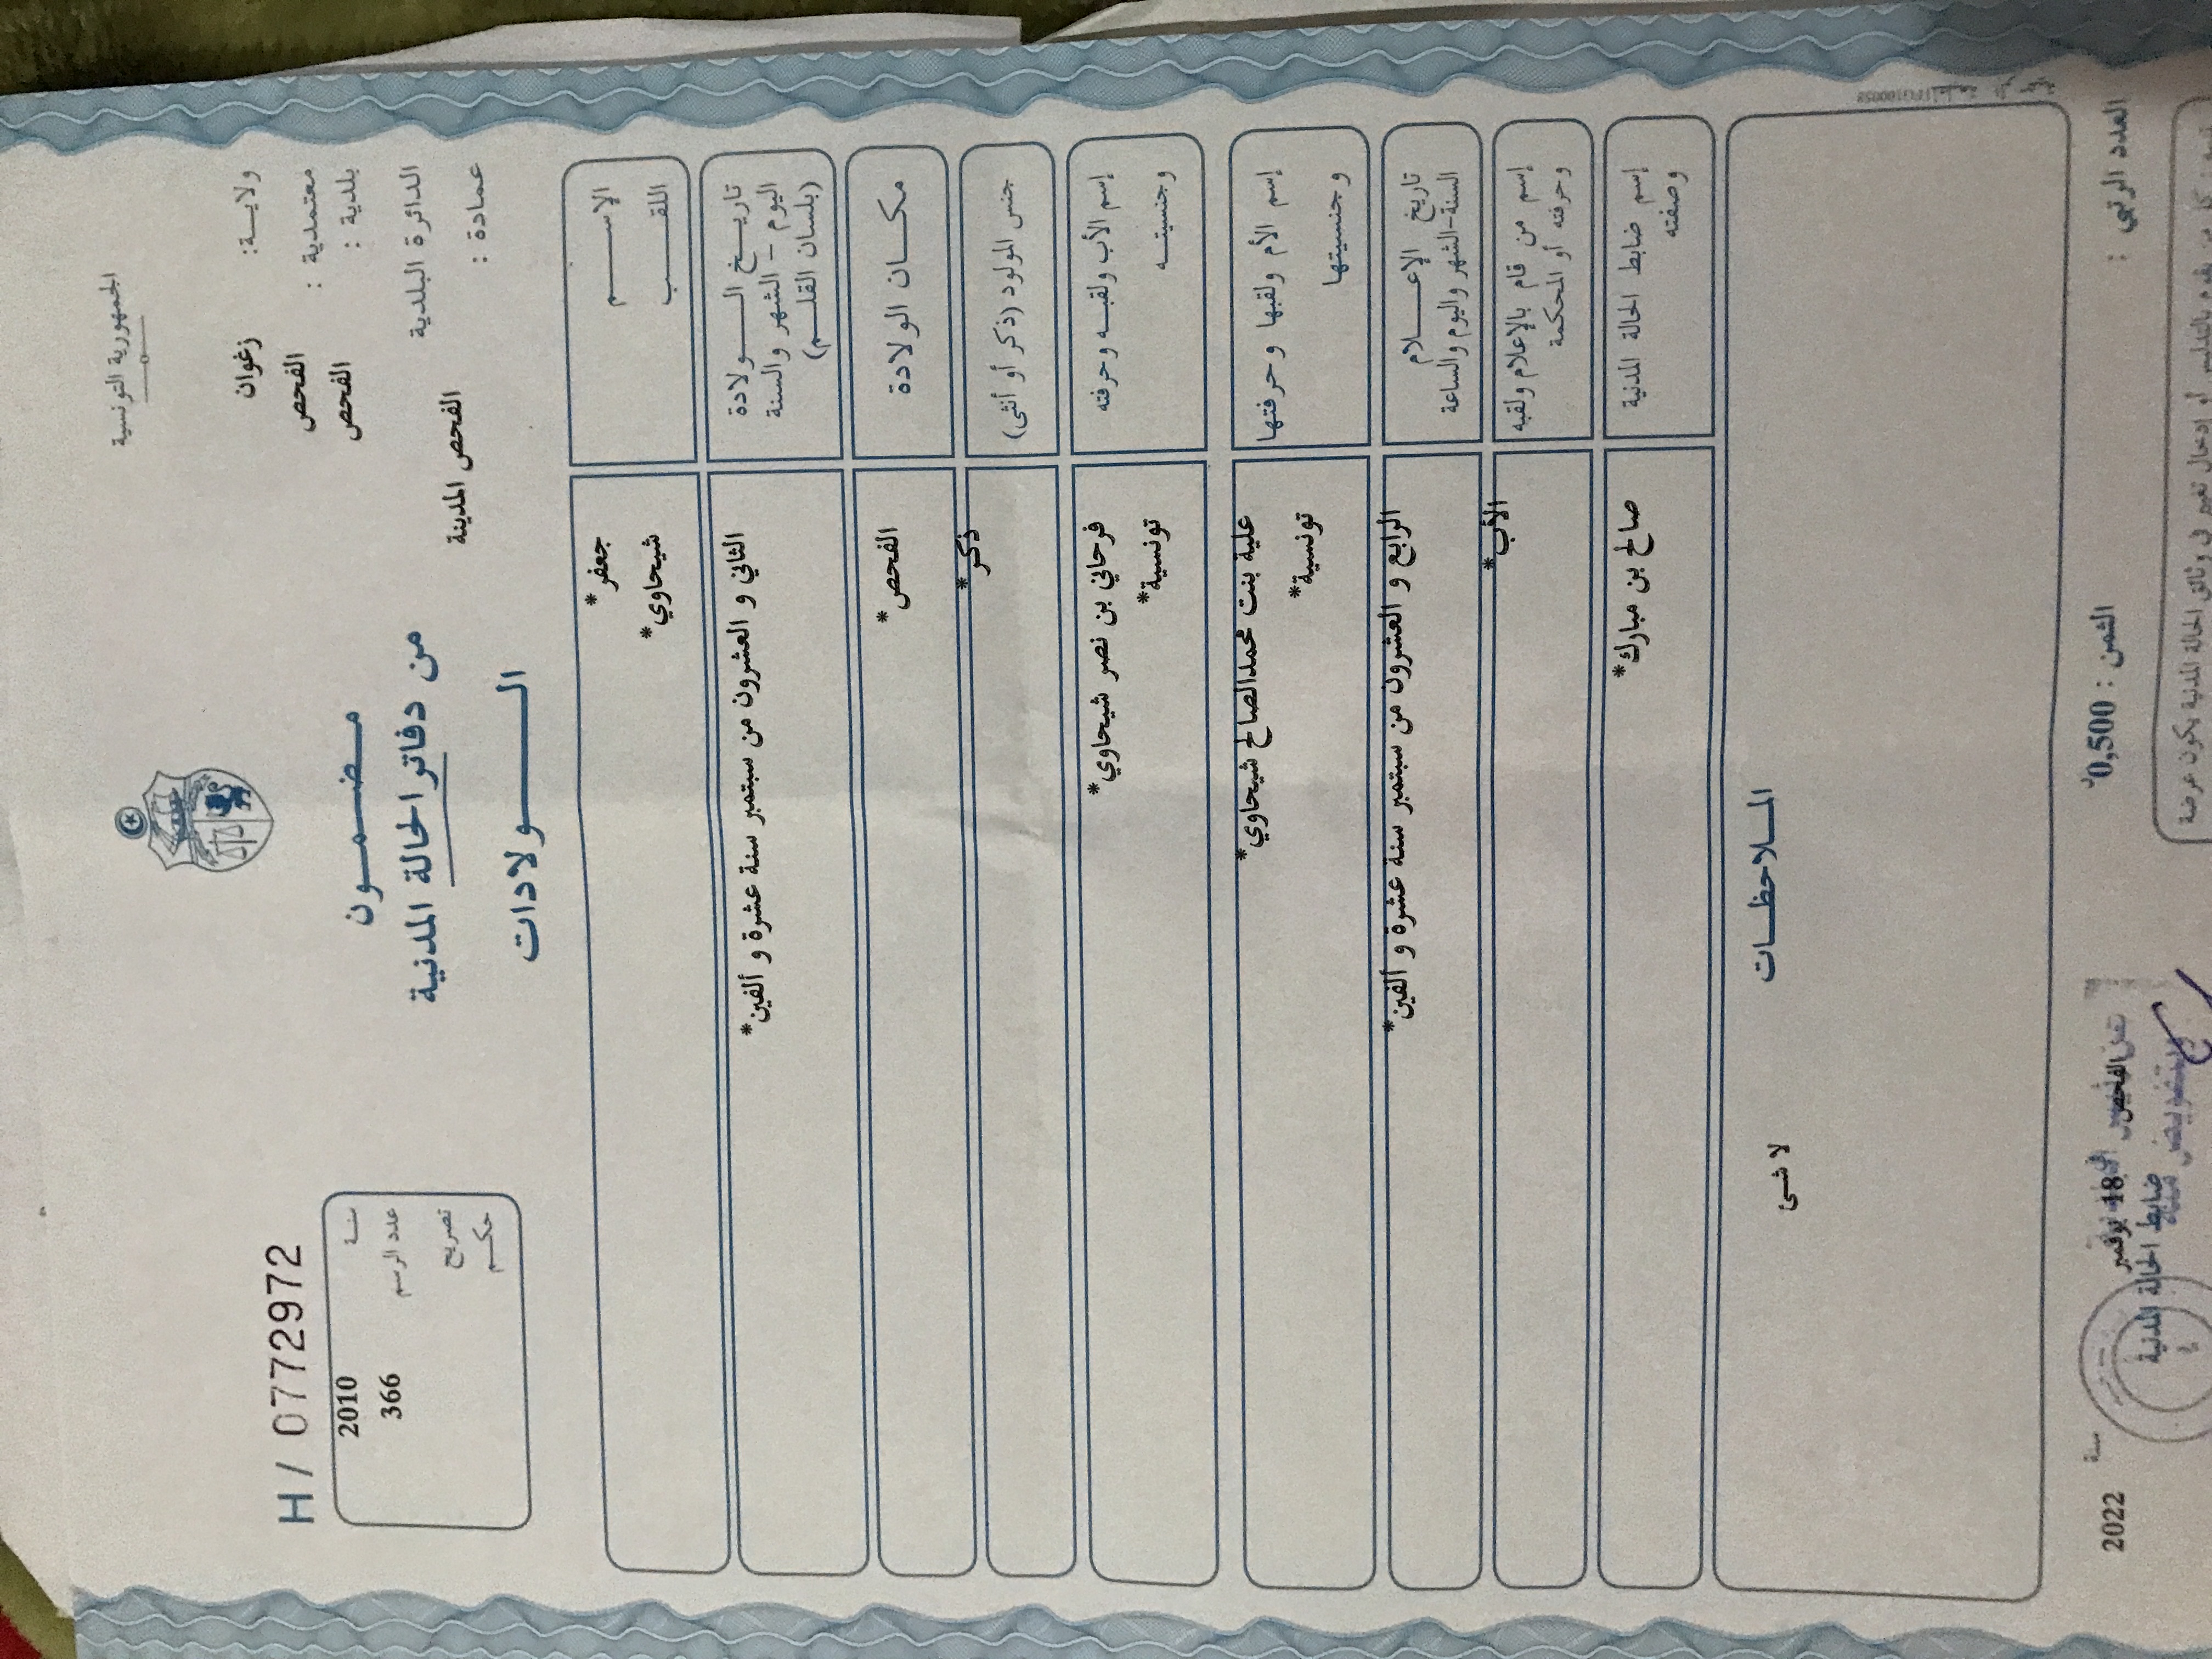 الجمهورية التونسية
ولاية: زغوان
معتمدية : الفحص
بلدية : الفحص
الدائرة البلدية
الفحص المدينة
عمادة :
H / 0772972
سنة 2010
عدد الرسم 366
تصريح
حكم
مضمون
من دفاتر الحالة المدنية
الولادات
الإسم جعفر*
اللقب شيحاوي*
تاريخ الولادة
اليوم - الشهر والسنة
(بلسان القلم)
الثاني و العشرون من سبتمبر سنة عشرة و ألفين*
مكان الولادة الفحص*
جنس المولود (ذكر أو أنثى) ذكر*
إسم الأب ولقبه وحرفته فرحاني بن نصر شيحاوي*
وجنسيته تونسية*
إسم الأم ولقبها وحرفتها علية بنت محمدالصالح شيحاوي*
وجنسيتها تونسية*
تاريخ الإعلام
السنة-الشهر واليوم والساعة
الرابع و العشرون من سبتمبر سنة عشرة و ألفين*
إسم من قام بالإعلام ولقبه
وحرفته أو المحكمة
الأب*
إسم ضابط الحالة المدنية
وصفته
صالح بن مبارك*
الملاحظات
لا شئ
العدد الرتبي :
الثمن : 0,500د
الفحص 18 نوفمبر سنة 2022
ضابط الحالة المدنية